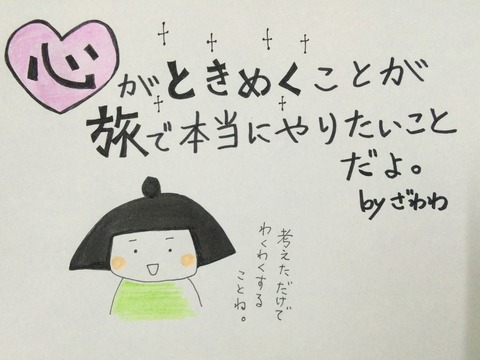 心がときめくことが
旅で本当にやりたいこと
だよ。
by ざわわ
考えただけで
わくわくする
ことね。